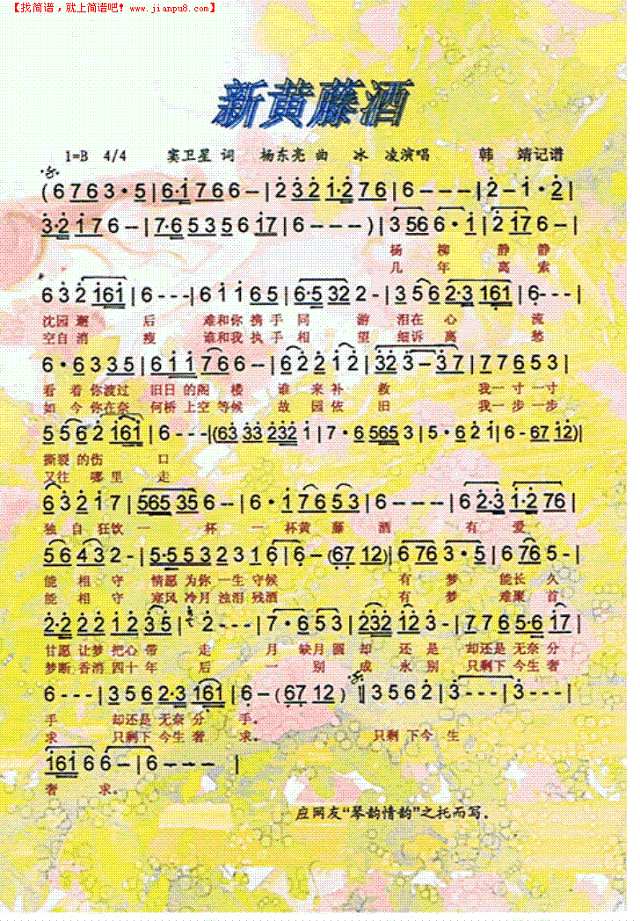 【找简谱，就上简谱吧！www.jianpu8.com】
新黄藤酒
1=B 4/4 窦卫星 词 杨东亮 曲 冰 凌演唱 韩 靖记谱
(6 7 6 3·5|6·1 7 6 6-|2 3 2 1·2 7 6|6---|2-1·2|
3·2 1 7 6--|7·6 5 3 5 6 1 7|6---)|3 5 6 6·1|2 1 7 6-|
杨 柳 静 静
几 年 离 索
6 3 2 1 6 1|6---|6 1 1 6 5|6·5 3 2 2-|3 5 6 2·3 1 6 1|6---|
沈园 邂 后 难和你 携 手 同 游 泪在 心 流
空自 消 瘦 谁和我 执 手 相 望 细诉 离 愁
6·6 3 3 5|6 1 1 7 6 6-|6 2 2 1 2|3 2 3-3 7|7 6 7 5 3|
看 着 你渡过 旧日 的阁 楼 谁 来 补 救 我一寸 一寸
如 今 你在奈 何桥 上空 等候 故 园 依 旧 我一步 一步
5 5 6 2 1 6 1|6---|(6 3 3 3 2 3 2 1|7·6 5 6 5 3|5·6 2 1|6-6 7 1 2)|
撕裂 的伤 口
又往 哪里 走
6 3 2 1 7|5 6 5 3 5 6--|6·1 7 6 5 3|6---|6 2·3 1·2 7 6|
独 自 狂饮 一 杯 一 杯黄 藤 酒 有 爱
5 6 4 3 2-|5·5 5 3 2 3 1 6|6-(6 7 1 2)|6 7 6 3·5|6 7 6 5-|
能 相 守 情愿 为你 一生 守候 有 梦 能长 久
能 相 守 寒风 冷月 浊泪 残酒 有 梦 难聚 首
2·2 2 2 1 2 3 5|2---|7·6 5 3|2 3 2 1 2 3-|7 7 6 5·6 1 7|
甘愿 让梦 把心 带 走 月 缺月 圆 却 还 是 却还是 无奈 分
梦断 香消 四十 年 后 一 别 成 永 别 只剩下 今生 奢
6---|3 5 6 2·3 1 6 1|6-(6 7 1 2)|3 5 6 2|3---|3---|
手 却还 是 无奈 分 手。
求 只剩 下 今生 奢 求。 只剩 下今 生
1 6 1 6 6-|6---|
奢 求。
应网友“琴韵情韵”之托而写.